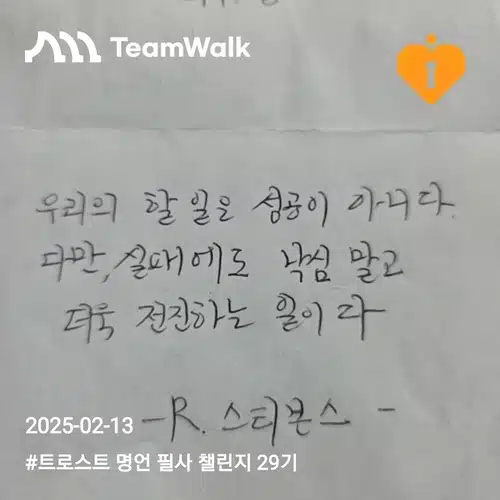 TeamWalk
우리의 할 일은 성공이 아니다.
다만, 실패에도 낙심 말고
더욱 전진하는 일이다
- R. 스티븐스 -
2025-02-13
#트로스트 명언 필사 챌린지 29기